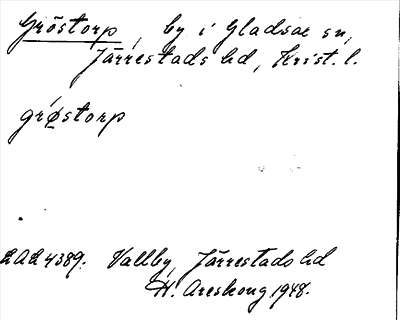 Gröstorp, by i Gladsax sn,
Järrestads hd, Krist. l.
grǿstorp
LAL 4389. Vallby, Järrestads hd
H. Areskoug 1948.